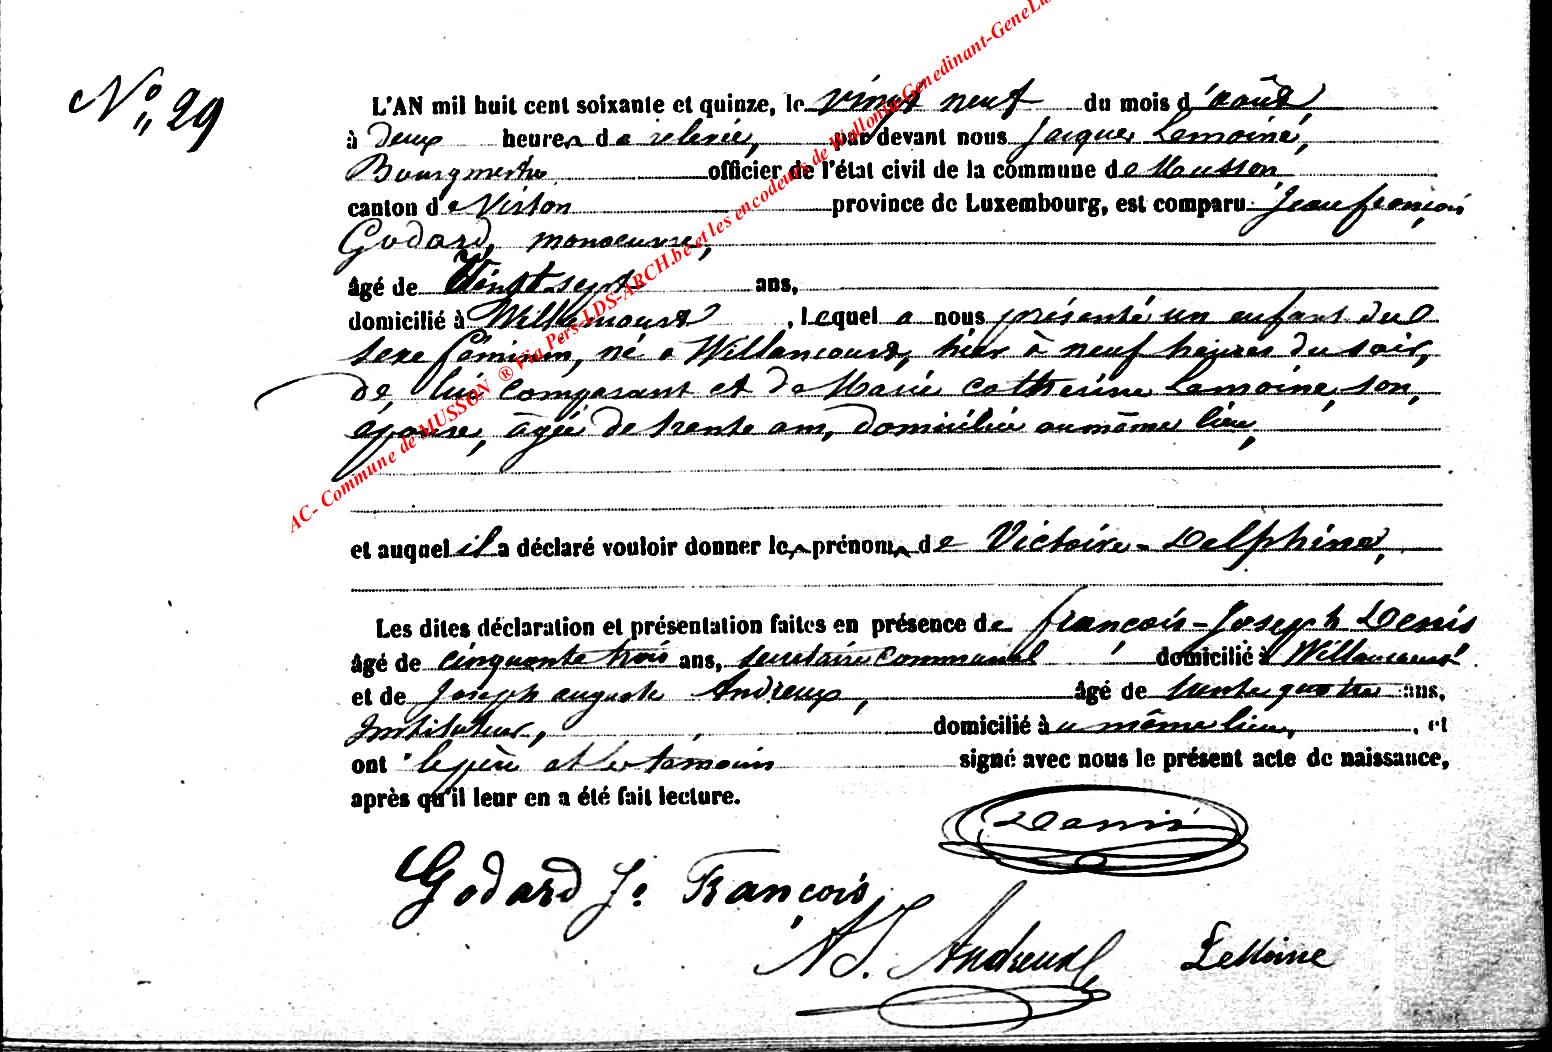 N° 29
L'AN mil huit cent soixante et quinze, le vingt neuf du mois d'août,
à deux heures de relevée, par devant nous Jacques Lemoine,
Bourgmestre officier de l'état civil de la commune de Musson
canton de Virton province de Luxembourg, est comparu Jean françois
Godard, manoeuvre,
âgé de Vingt-sept ans,
domicilié à Willancourt, lequel a nous présenté un enfant du
sexe féminin, né à Willancourt, hier à neuf heures du soir,
de lui comparant et de Marie Catherine Lemoine, son
épouse, âgée de trente ans, domiciliée au même lieu,
et auquel il a déclaré vouloir donner les prénoms de Victoire-Delphine,
Les dites déclaration et présentation faites en présence de françois-Joseph Denis
âgé de cinquante trois ans, secrétaire communal domicilié à Willancourt
et de Joseph auguste Andreux, âgé de trente quatre ans,
Instituteur, domicilié au même lieu, , et
ont le père et les témoins signé avec nous le présent acte de naissance,
après qu'il leur en a été fait lecture.
Denis
Godard J. François
A J. Andreux
LeMoine
AC- Commune de MUSSON ® Via Pers-LDS-ARCH.be et les encodeurs de Wallonie-Genedinant-GeneLu